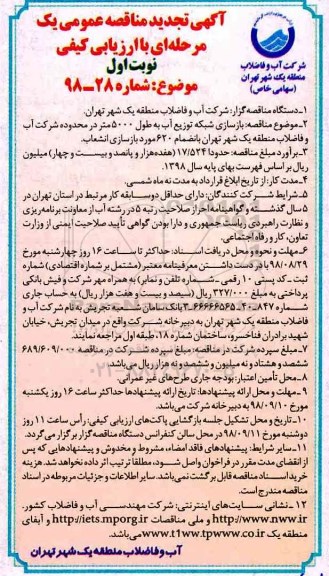 آگهی تجدید مناقصه عمومی یک
مرحله‌ای با ارزیابی کیفی
نوبت اول
موضوع: شماره ۲۸-۹۸
شرکت آب و فاضلاب
منطقه یک شهر تهران
(سهامی خاص)
۱-دستگاه مناقصه‌گزار: شرکت آب و فاضلاب منطقه یک شهر تهران.
۲-موضوع مناقصه: بازسازی شبکه توزیع آب به طول ۵۰۰۰متر در محدوده شرکت آب
و فاضلاب منطقه یک شهر تهران بانضمام ۶۲۰ مورد بازسازی انشعاب.
۳-برآورد مبلغ مناقصه: حدودا ۱۷/۵۲۴ (هفده‌هزار و پانصد و بیست و چهار) میلیون
ریال بر اساس فهرست بهای پایه سال ۱۳۹۸.
۴-مدت کار: از تاریخ ابلاغ قرارداد به مدت نه ماه شمسی.
۵-شرایط شرکت کنندگان: دارای حداقل دوسابقه کار مرتبط در استان تهران در
۵ سال گذشته و گواهینامه احراز صلاحیت رتبه ۵ در رشته آب از معاونت برنامه‌ریزی
و نظارت راهبردی ریاست جمهوری و دارا بودن گواهی تأیید صلاحیت ایمنی از وزارت
تعاون، کار و رفاه اجتماعی.
۶-مهلت و نحوه و محل دریافت اسناد: حداکثر تا ساعت ۱۶ روز چهارشنبه مورخ
۹۸/۰۸/۲۹ با در دست داشتن معرفینامه معتبر (مشتمل بر شماره اقتصادی) شماره
ثبت- کد پستی ۱۰ رقمی- شماره تلفن و نمابر) به همراه مهر شرکت و فیش بانکی
پرداختی به مبلغ ۳۲۷/۰۰۰ ریال (سیصد و بیست و هفت هزار ریال) به حساب جاری
بانک سامان شعبه تجریش به نام شرکت آب و
فاضلاب منطقه یک شهر تهران به دبیرخانه شرکت واقع در میدان تجریش، خیابان
شهید برادران فناخسرو، ساختمان شماره ۱۸، طبقه اول مراجعه نمایند.
۷-مبلغ سپرده شرکت در مناقصه: مبلغ سپرده شرکت در مناقصه ۶۸۹/۶۰۹/۰۰۰
ششصد و هشتاد و نه میلیون و ششصد و نه هزار ریال می‌باشد.
۸-محل تأمین اعتبار: بودجه جاری طرح‌های غیر عمرانی.
۹-مهلت و محل ارائه پیشنهادها: تاریخ ارائه پیشنهادها حداکثر ساعت ۱۶ روز یکشنبه
مورخ ۹۸/۰۹/۱۰ به دبیرخانه شرکت می‌باشد.
۱۰-تاریخ و محل تشکیل جلسه بازگشایی پاکت‌های ارزیابی کیفی: رأس ساعت ۱۱ روز
دوشنبه مورخ ۹۸/۰۹/۱۱ در محل سالن کنفرانس دستگاه مناقصه‌گزار برگزار می‌گردد.
۱۱-سایر شرایط: پیشنهادهای فاقد امضاء، مشروط و مخدوش و پیشنهادهایی که پس
از انقضای مدت مقرر در فراخوان واصل شود، مطلقا ترتیب اثر داده نخواهد شد. هزینه
خرید اسناد مناقصه قابل برگشت نمی‌باشد. سایر اطلاعات و جزئیات مربوطه در اسناد
مناقصه مندرج است.
۱۲-نشانی سایت‌های اینترنتی: شرکت مهندسی آب و فاضلاب کشور.
http://www.nww.ir و ملی مناقصات http://iets.mporg.ir و آبفای
منطقه یک www.t1.tpww.co.ir می‌باشد.
آب و فاضلاب منطقه یک شهر تهران